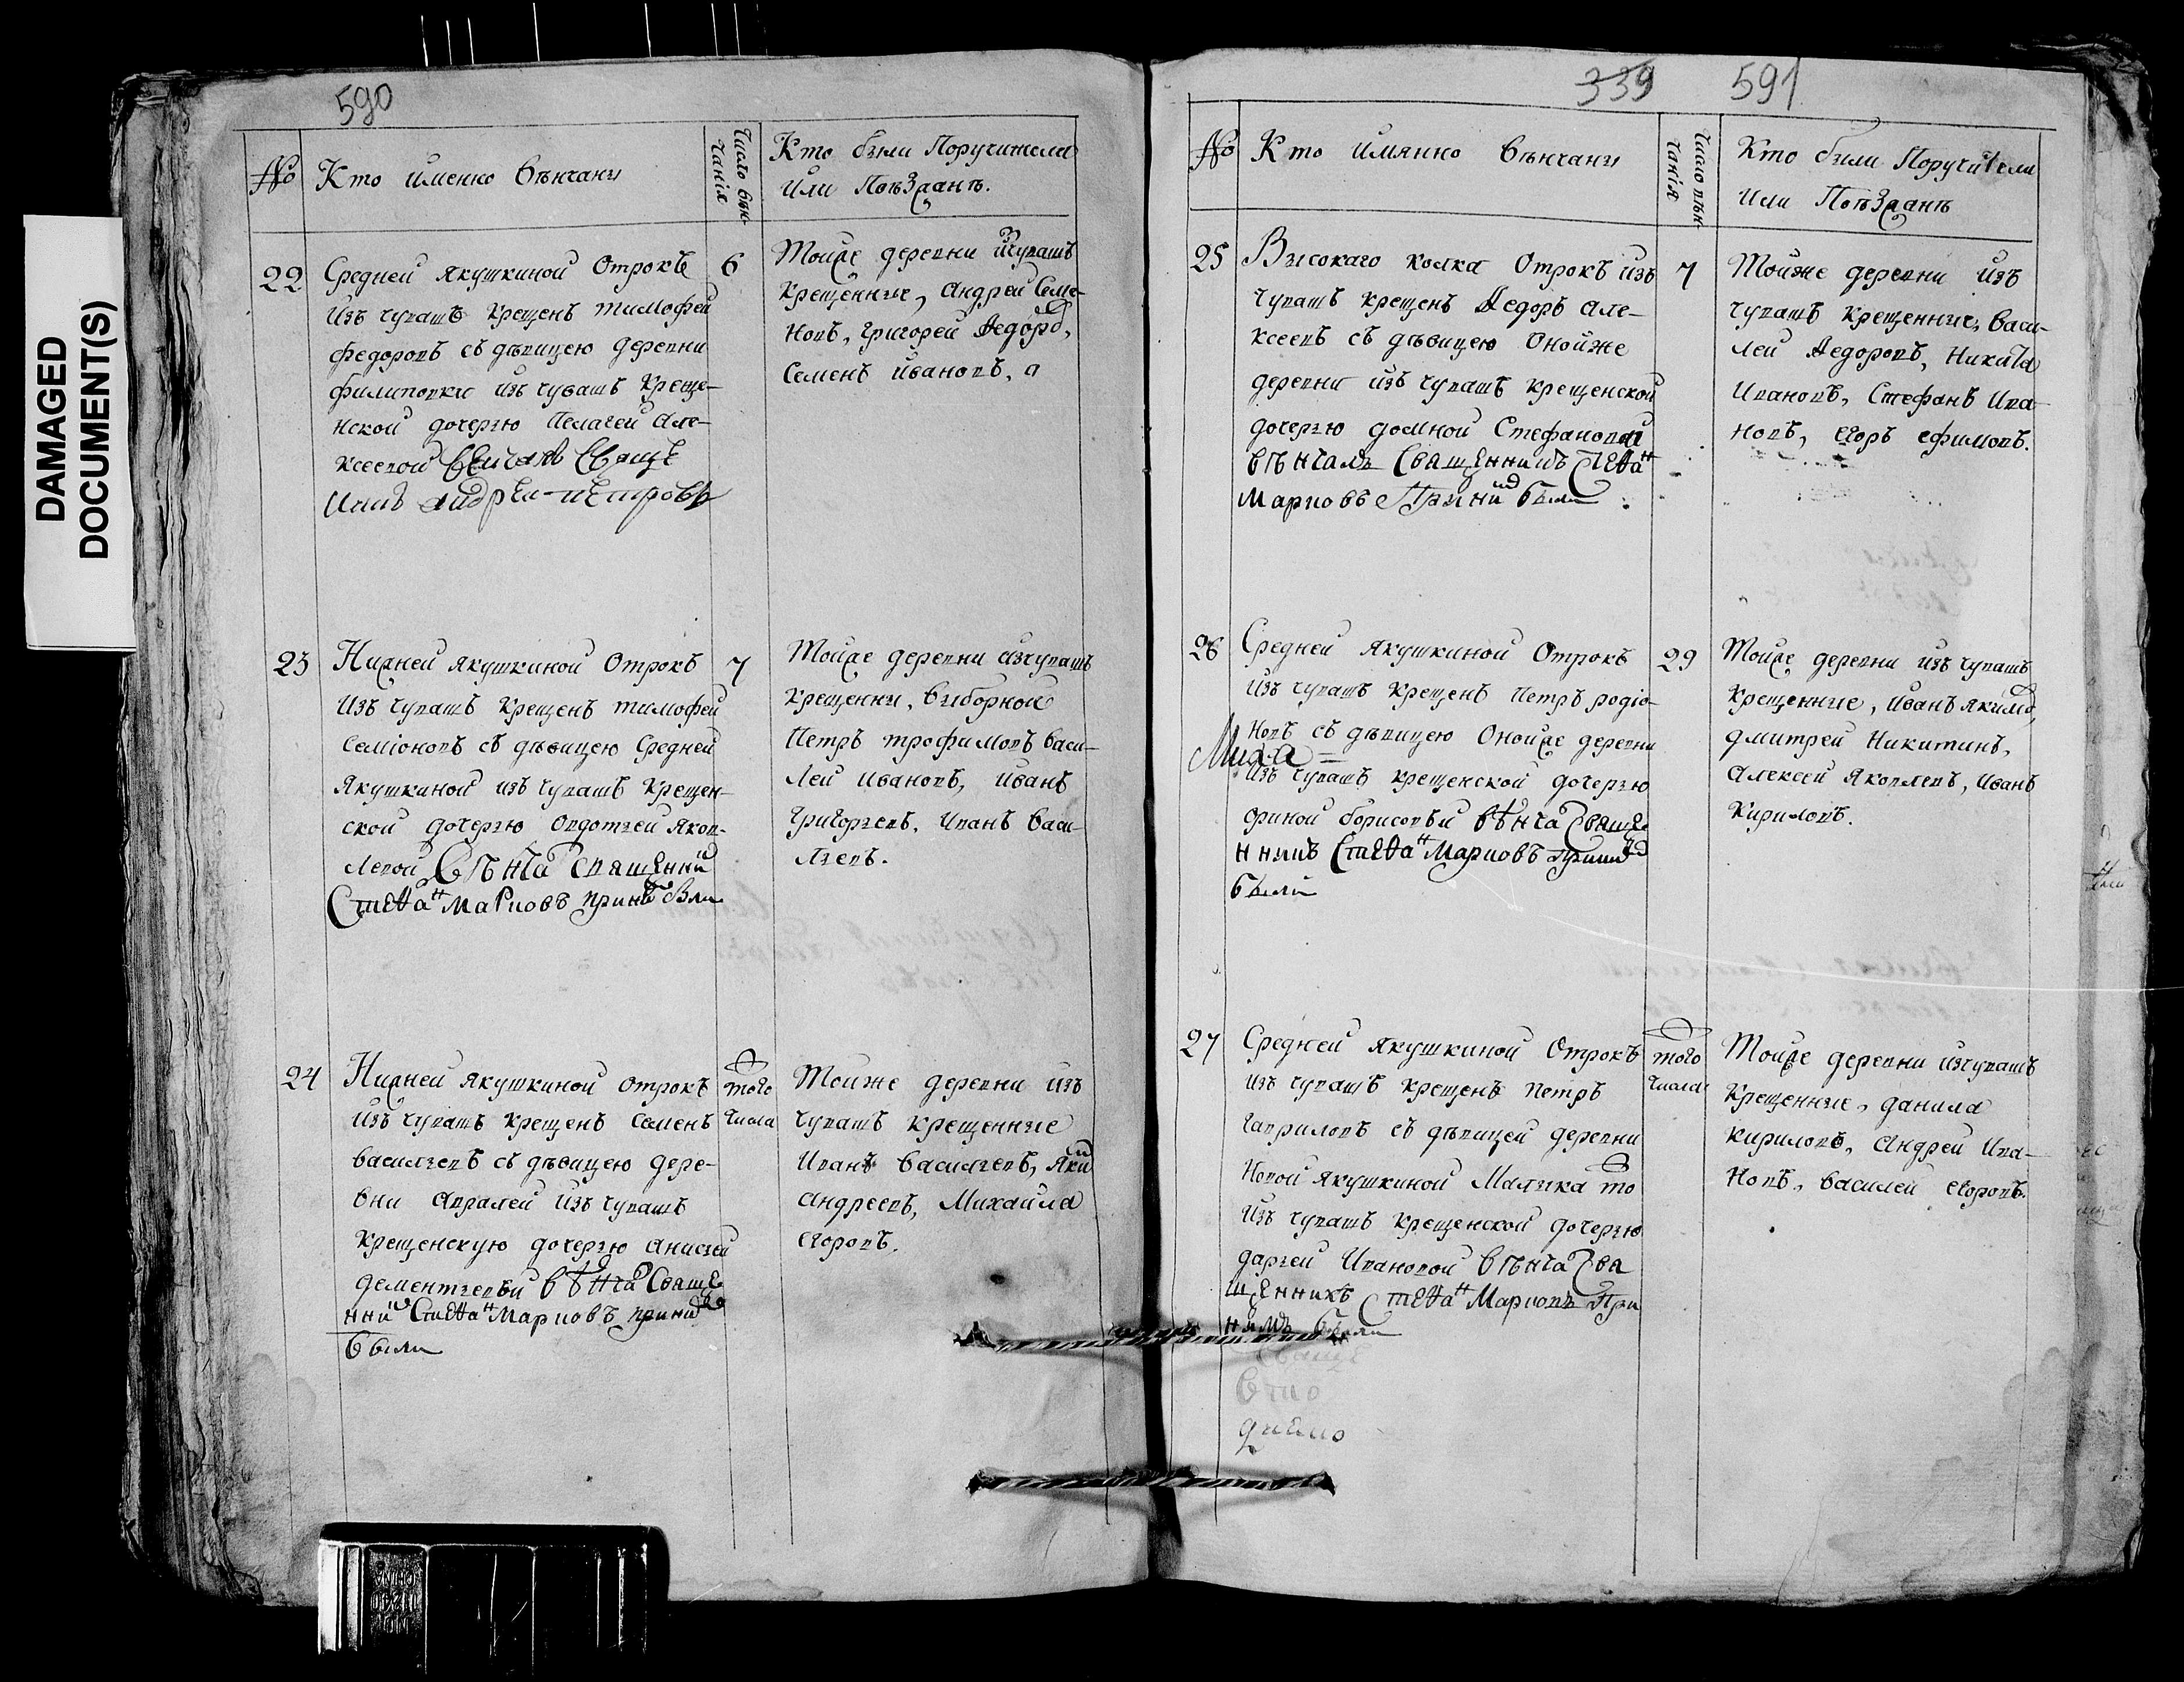 DAMAGED
DOCUMENT(S)
590
№
Кто именно вѣнчаны
Число вѣн-
чанія
Кто были Поручители
или Поѣзданъ.
22
Средней Якушкиной Отрокъ
изъ чувашъ крещенъ тимофей
федоровъ съ дѣвицею деревни
филиповки изъ чувашъ креще-
нской дочерью Пелагеей Але-
ксеевой
Андрей Петровъ
6
Тойже деревни
крещенные, Андрей Семе-
новъ, Григорей Ѳедоров,
Семенъ ивановъ,
23
Нижней Якушкиной Отрокъ
изъ чувашъ крещенъ тимофей
семіоновъ съ дѣвицею Средней
Якушкиной изъ чувашъ крещен-
ской дочерью Овдотьей Яков-
левой Вѣнча Священни
Стеѳан Марковъ при ни были
7
Тойже деревни изчувашъ
крещенны, выборной
Петръ трофимовъ васи-
лей ивановъ, иванъ
григорьевъ, иванъ васи-
льевъ.
24
Нижней Якушкиной отрокъ
изъ чувашъ крещенъ семенъ
васильевъ съ дѣвицею дере-
вни Авралей изъ чувашъ
крещенскую дочерью Анисьей
дементьевой вѣнча Свяще
нни Стеѳан Марковъ при ни
были
того
числа
Тоиже деревни изъ
чувашъ крещенные
Иванъ васильевъ, Яки
Андреевъ, Михайла
егоровъ.
339 591
№
Кто имянно вѣнчаны
Число вѣн-
чанія
Кто были Поручители
или Поѣзданъ
25
Высокаго колка Отрокъ изъ
чувашъ крещенъ Ѳедоръ Але-
ксеевъ съ дѣвицею Онойже
деревни изъ чувашъ крещенской
дочерью домной Стефановой
вѣнчалъ Священникъ Стеѳан
Марковъ При ни были
7
Тойже деревни изъ
чувашъ крещенные, васи-
лей Ѳедоровъ, Никита
Ивановъ, Стефанъ Ива-
новъ, егоръ ефимовъ.
26
Средней Якушкиной Отрокъ
изъ чувашъ крещенъ Петръ родіо-
новъ съ дѣвицею Онойже деревни
изъ чувашъ крещенской дочерью
ориной борисовой вѣнча Свяще
нникъ Стеѳан Марковъ при ни
были
29
Тойже деревни изъ чувашъ
крещенные, иванъ якимо,
дмитрей Никитинъ,
Алексей Яковлевъ, иванъ
кириловъ.
27
Средней Якушкиной Отрокъ
изъ чувашъ крещенъ петръ
гавриловъ съ дѣвицей деревни
Новой Якушкиной Малыкла то
изъ чувашъ крещенской дочерью
дарьей Ивановой вѣнча Свя
щенникъ Стеѳан Марковъ При
нимъ были
того
числа
Тойже деревни изчувашъ
крещенные, данила
кириловъ, Андрей Ива-
новъ, василей егоровъ.